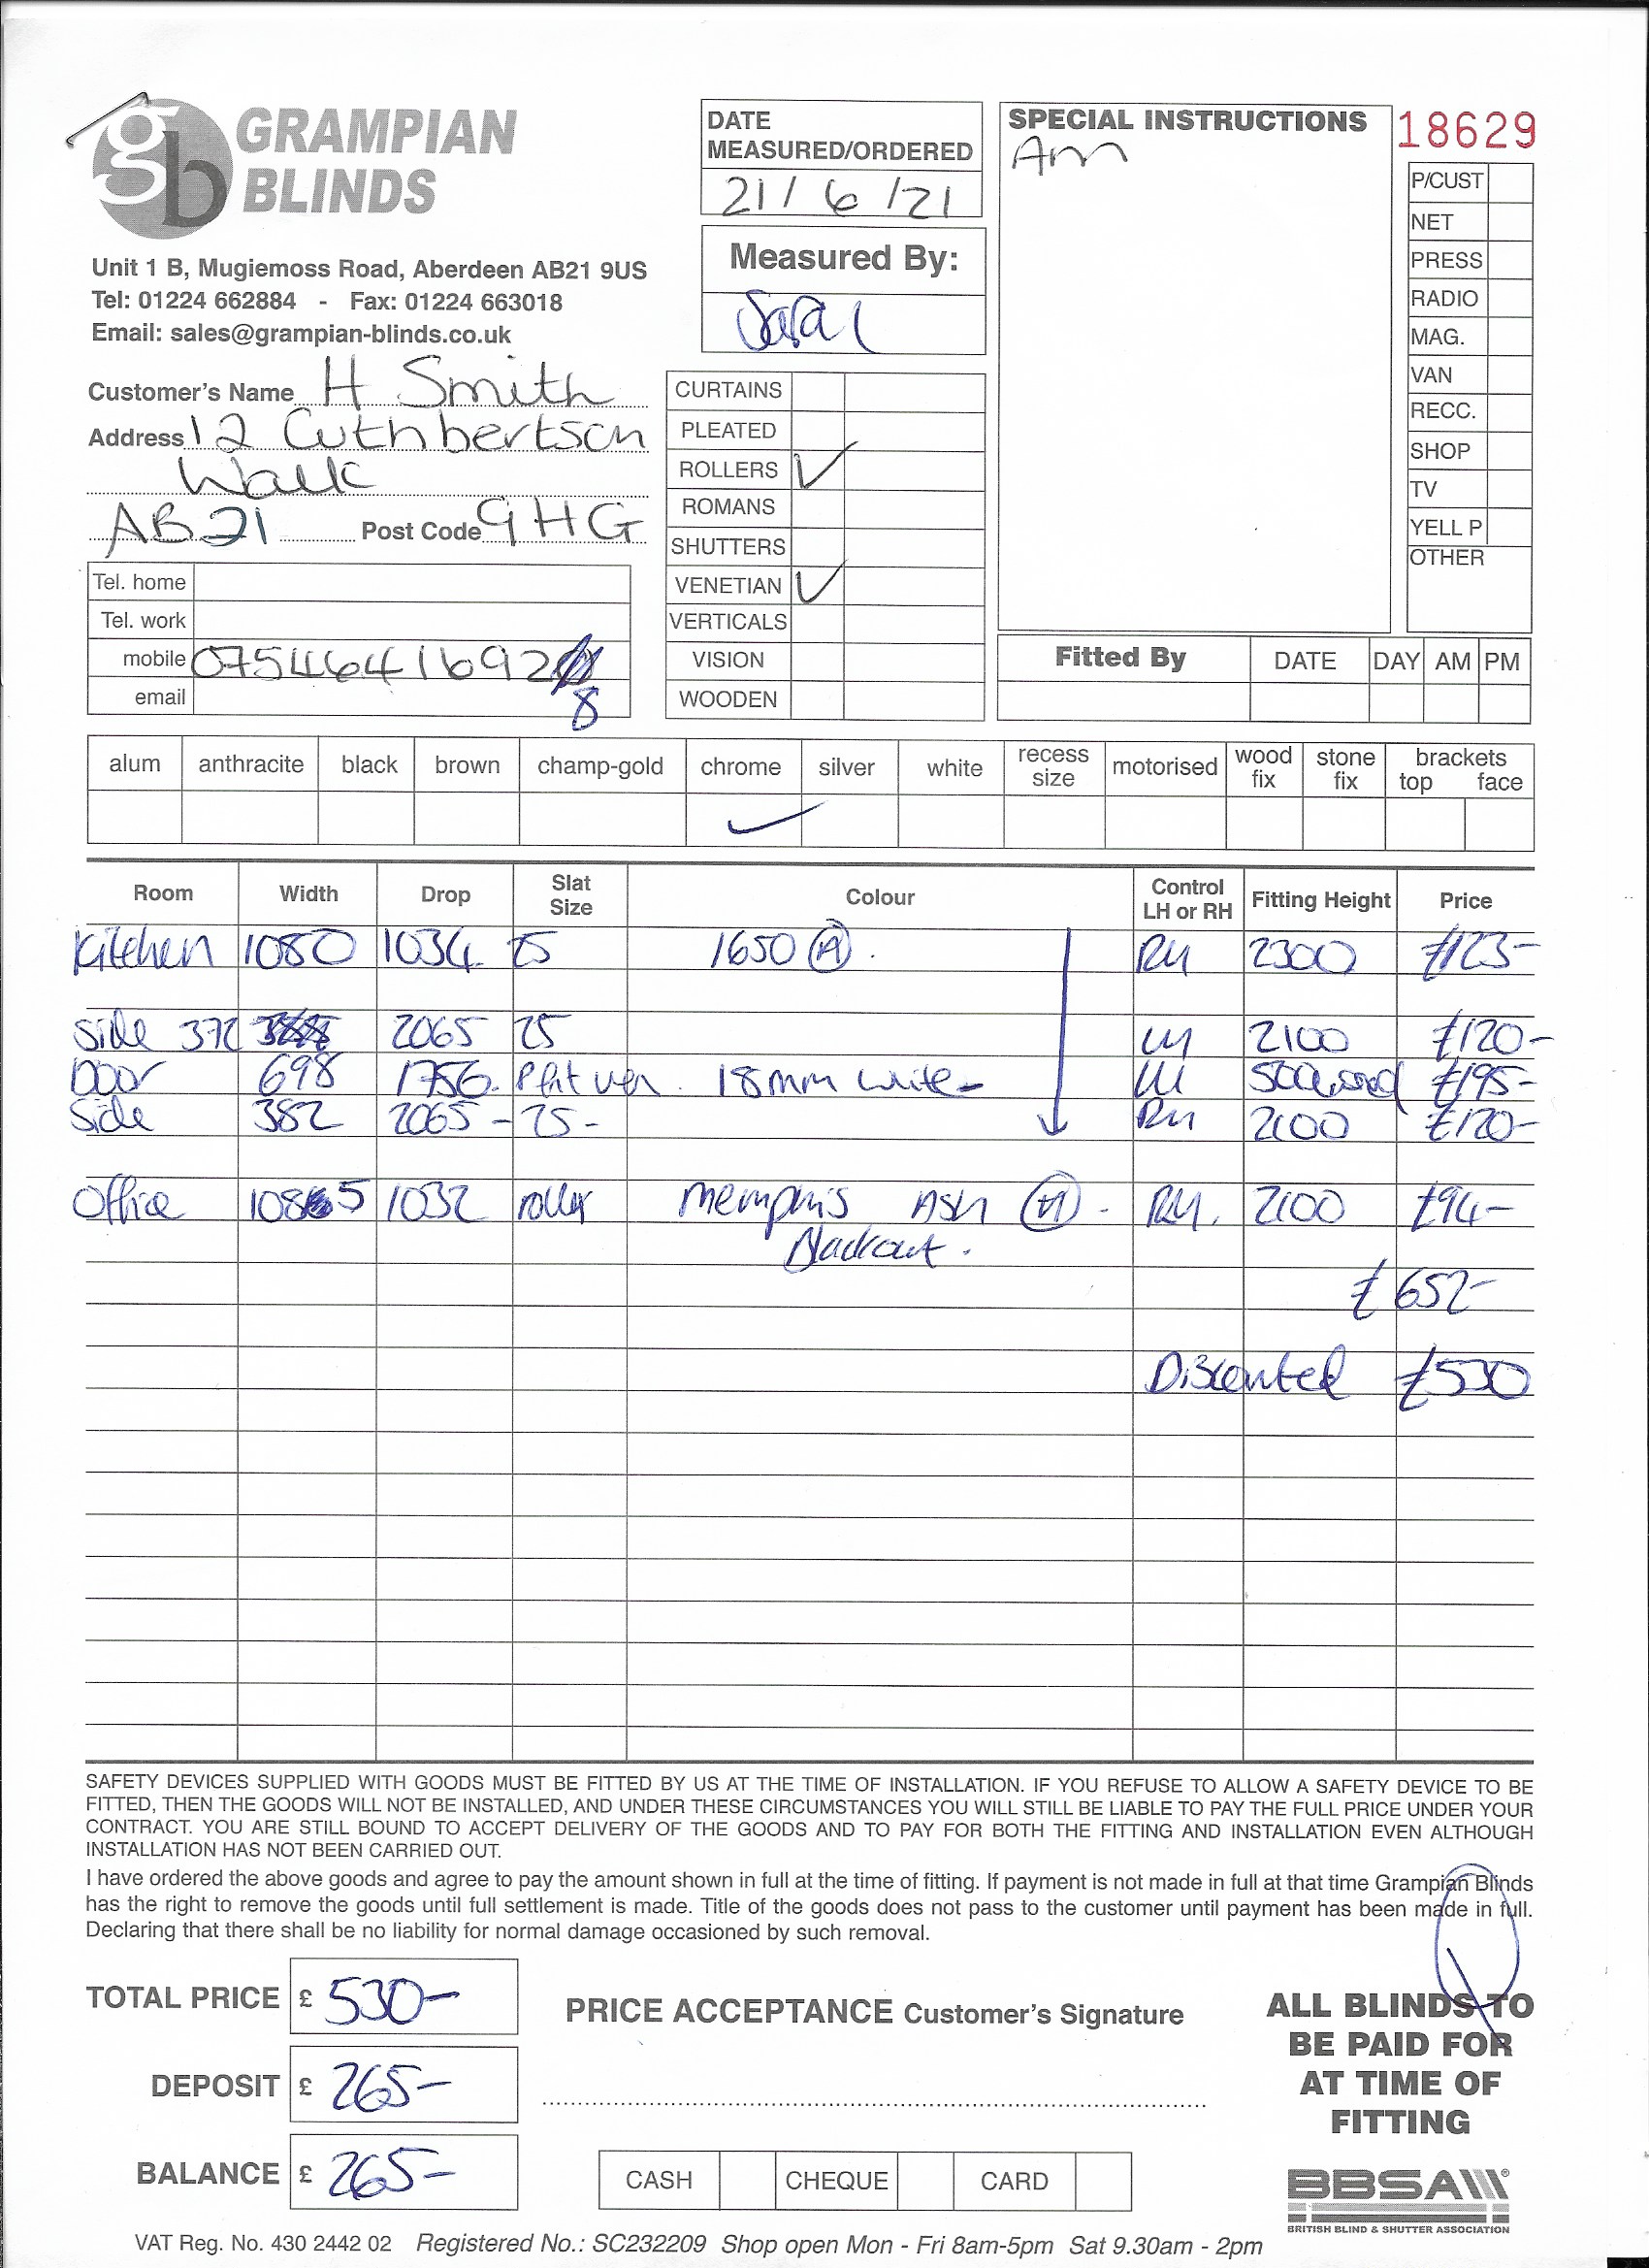 gb GRAMPIAN
BLINDS
Unit 1 B, Mugiemoss Road, Aberdeen AB21 9US
Tel: 01224 662884 - Fax: 01224 663018
Email: sales@grampian-blinds.co.uk
Customer's Name H Smith
Address 12 Cuthbertson
Walk
AB21 Post Code 9HG
Tel. home
Tel. work
mobile 07546416928
email
DATE
MEASURED/ORDERED
21/6/21
Measured By:
Sarah
CURTAINS
PLEATED
ROLLERS ✓
ROMANS
SHUTTERS
VENETIAN ✓
VERTICALS
VISION
WOODEN
SPECIAL INSTRUCTIONS
Am
18629
P/CUST
NET
PRESS
RADIO
MAG.
VAN
RECC.
SHOP
TV
YELL P
OTHER
Fitted By DATE DAY AM PM
alum anthracite black brown champ-gold chrome silver white recess size motorised wood fix stone fix brackets top face
✓
Room Width Drop Slat Size Colour Control LH or RH Fitting Height Price
Kitchen 1080 1034 25 1650 (A). RH 2300 £123-
Side 372 2065 25 LH 2100 £120-
Door 698 1756 Pfit ven. 18mm white- LH £195-
Side 382 2065- 25- RH 2100 £120-
Office 1085 1032 roller Memphis Ash (A) - RH. 2100 £94-
Blackout.
£652-
Discounted £530
SAFETY DEVICES SUPPLIED WITH GOODS MUST BE FITTED BY US AT THE TIME OF INSTALLATION. IF YOU REFUSE TO ALLOW A SAFETY DEVICE TO BE
FITTED, THEN THE GOODS WILL NOT BE INSTALLED, AND UNDER THESE CIRCUMSTANCES YOU WILL STILL BE LIABLE TO PAY THE FULL PRICE UNDER YOUR
CONTRACT. YOU ARE STILL BOUND TO ACCEPT DELIVERY OF THE GOODS AND TO PAY FOR BOTH THE FITTING AND INSTALLATION EVEN ALTHOUGH
INSTALLATION HAS NOT BEEN CARRIED OUT.
I have ordered the above goods and agree to pay the amount shown in full at the time of fitting. If payment is not made in full at that time Grampian Blinds
has the right to remove the goods until full settlement is made. Title of the goods does not pass to the customer until payment has been made in full.
Declaring that there shall be no liability for normal damage occasioned by such removal.
TOTAL PRICE £ 530-
DEPOSIT £ 265-
BALANCE £ 265-
PRICE ACCEPTANCE Customer's Signature
CASH CHEQUE CARD
ALL BLINDS TO
BE PAID FOR
AT TIME OF
FITTING
BBSA®
BRITISH BLIND & SHUTTER ASSOCIATION
VAT Reg. No. 430 2442 02 Registered No.: SC232209 Shop open Mon - Fri 8am-5pm Sat 9.30am - 2pm